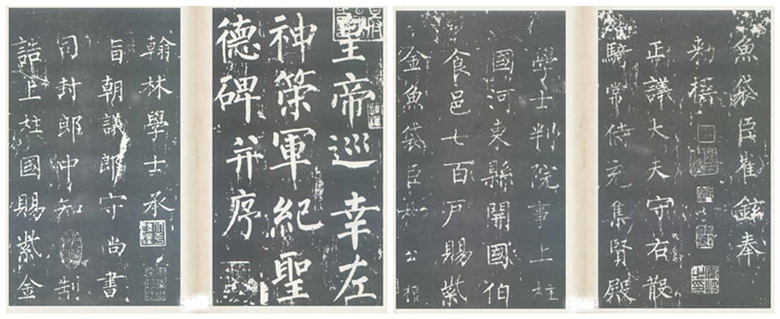 皇帝巡幸左
神策軍紀聖
德碑并序
翰林學士承
旨朝議郎守尚書
司封郎中知制
誥上柱國賜紫金
魚袋臣崔鉉奉
敕撰
正議大夫守右散
騎常侍充集賢殿
學士判院事上柱
國河東縣開國伯
食邑七百戶賜紫
金魚袋臣柳公權